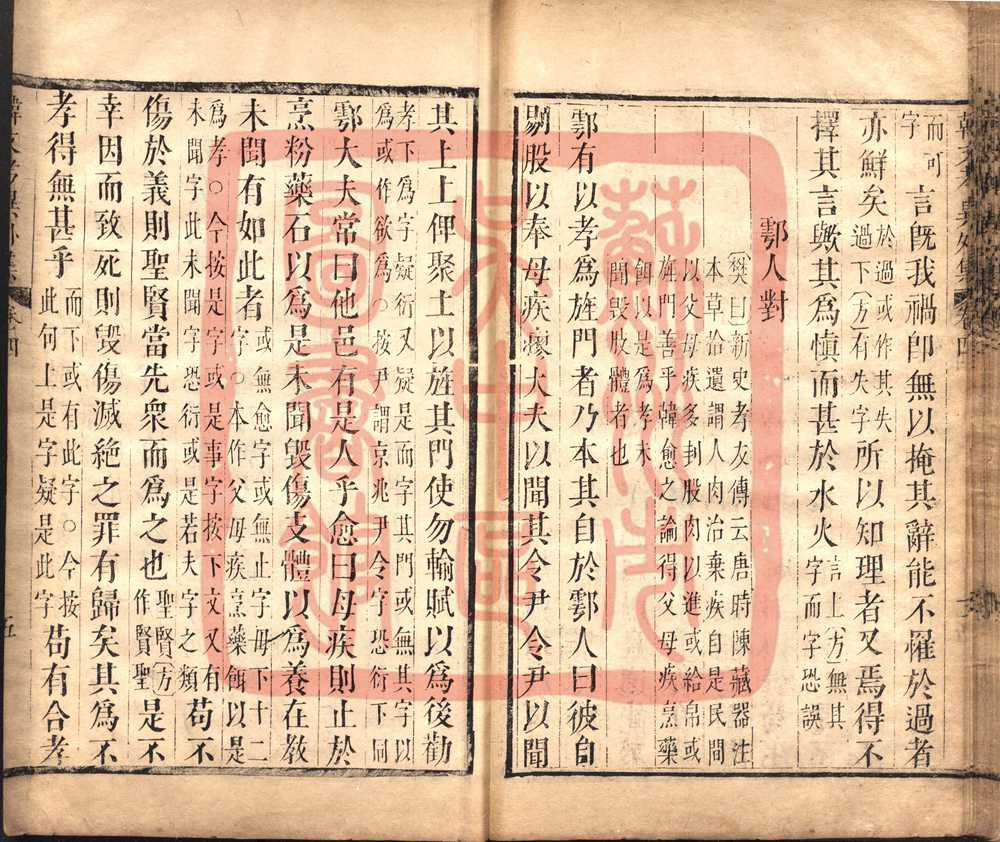 字而可言既我禍即無以掩其辭能不罹於過者
亦鮮矣於過或作其失過下(方)有失字所以知理者又焉得不
擇其言歟其為慎而甚於水火言上(方)無其字而字恐誤
鄠人對
(樊曰)新史孝友傳云唐時陳藏器注
本草拾遺謂人肉治羸疾自是民間
以父母疾多刲股肉以進或給帛或
旌門善乎韓愈之論得父母疾烹藥
餌以是為孝未
聞毀股體者也
鄠有以孝為旌門者乃本其自於鄠人曰彼自
剔股以奉母疾瘳大夫以聞其令尹令尹以聞
其上上俾聚土以旌其門使勿輸賦以為後勸
孝下為字疑衍又疑是而字其門或無其字以為或作欲為○按尹謂京兆尹令字恐衍下同
鄠大夫常曰他邑有是人乎愈曰母疾則止於
烹粉藥石以為是未聞毀傷支體以為養在教
未聞有如此者或無愈字或無止字母下十二字○本作父母疾烹藥餌以是
為孝○今按是字或是事字按下文又有未聞字此未聞字恐衍或是若夫字之類苟不
傷於義則聖賢當先眾而為之也聖賢(方)作賢聖是不
幸因而致死則毀傷滅絕之罪有歸矣其為不
孝得無甚乎而下或有此字○今按此何上是字疑是此字苟有合孝
卷四
五